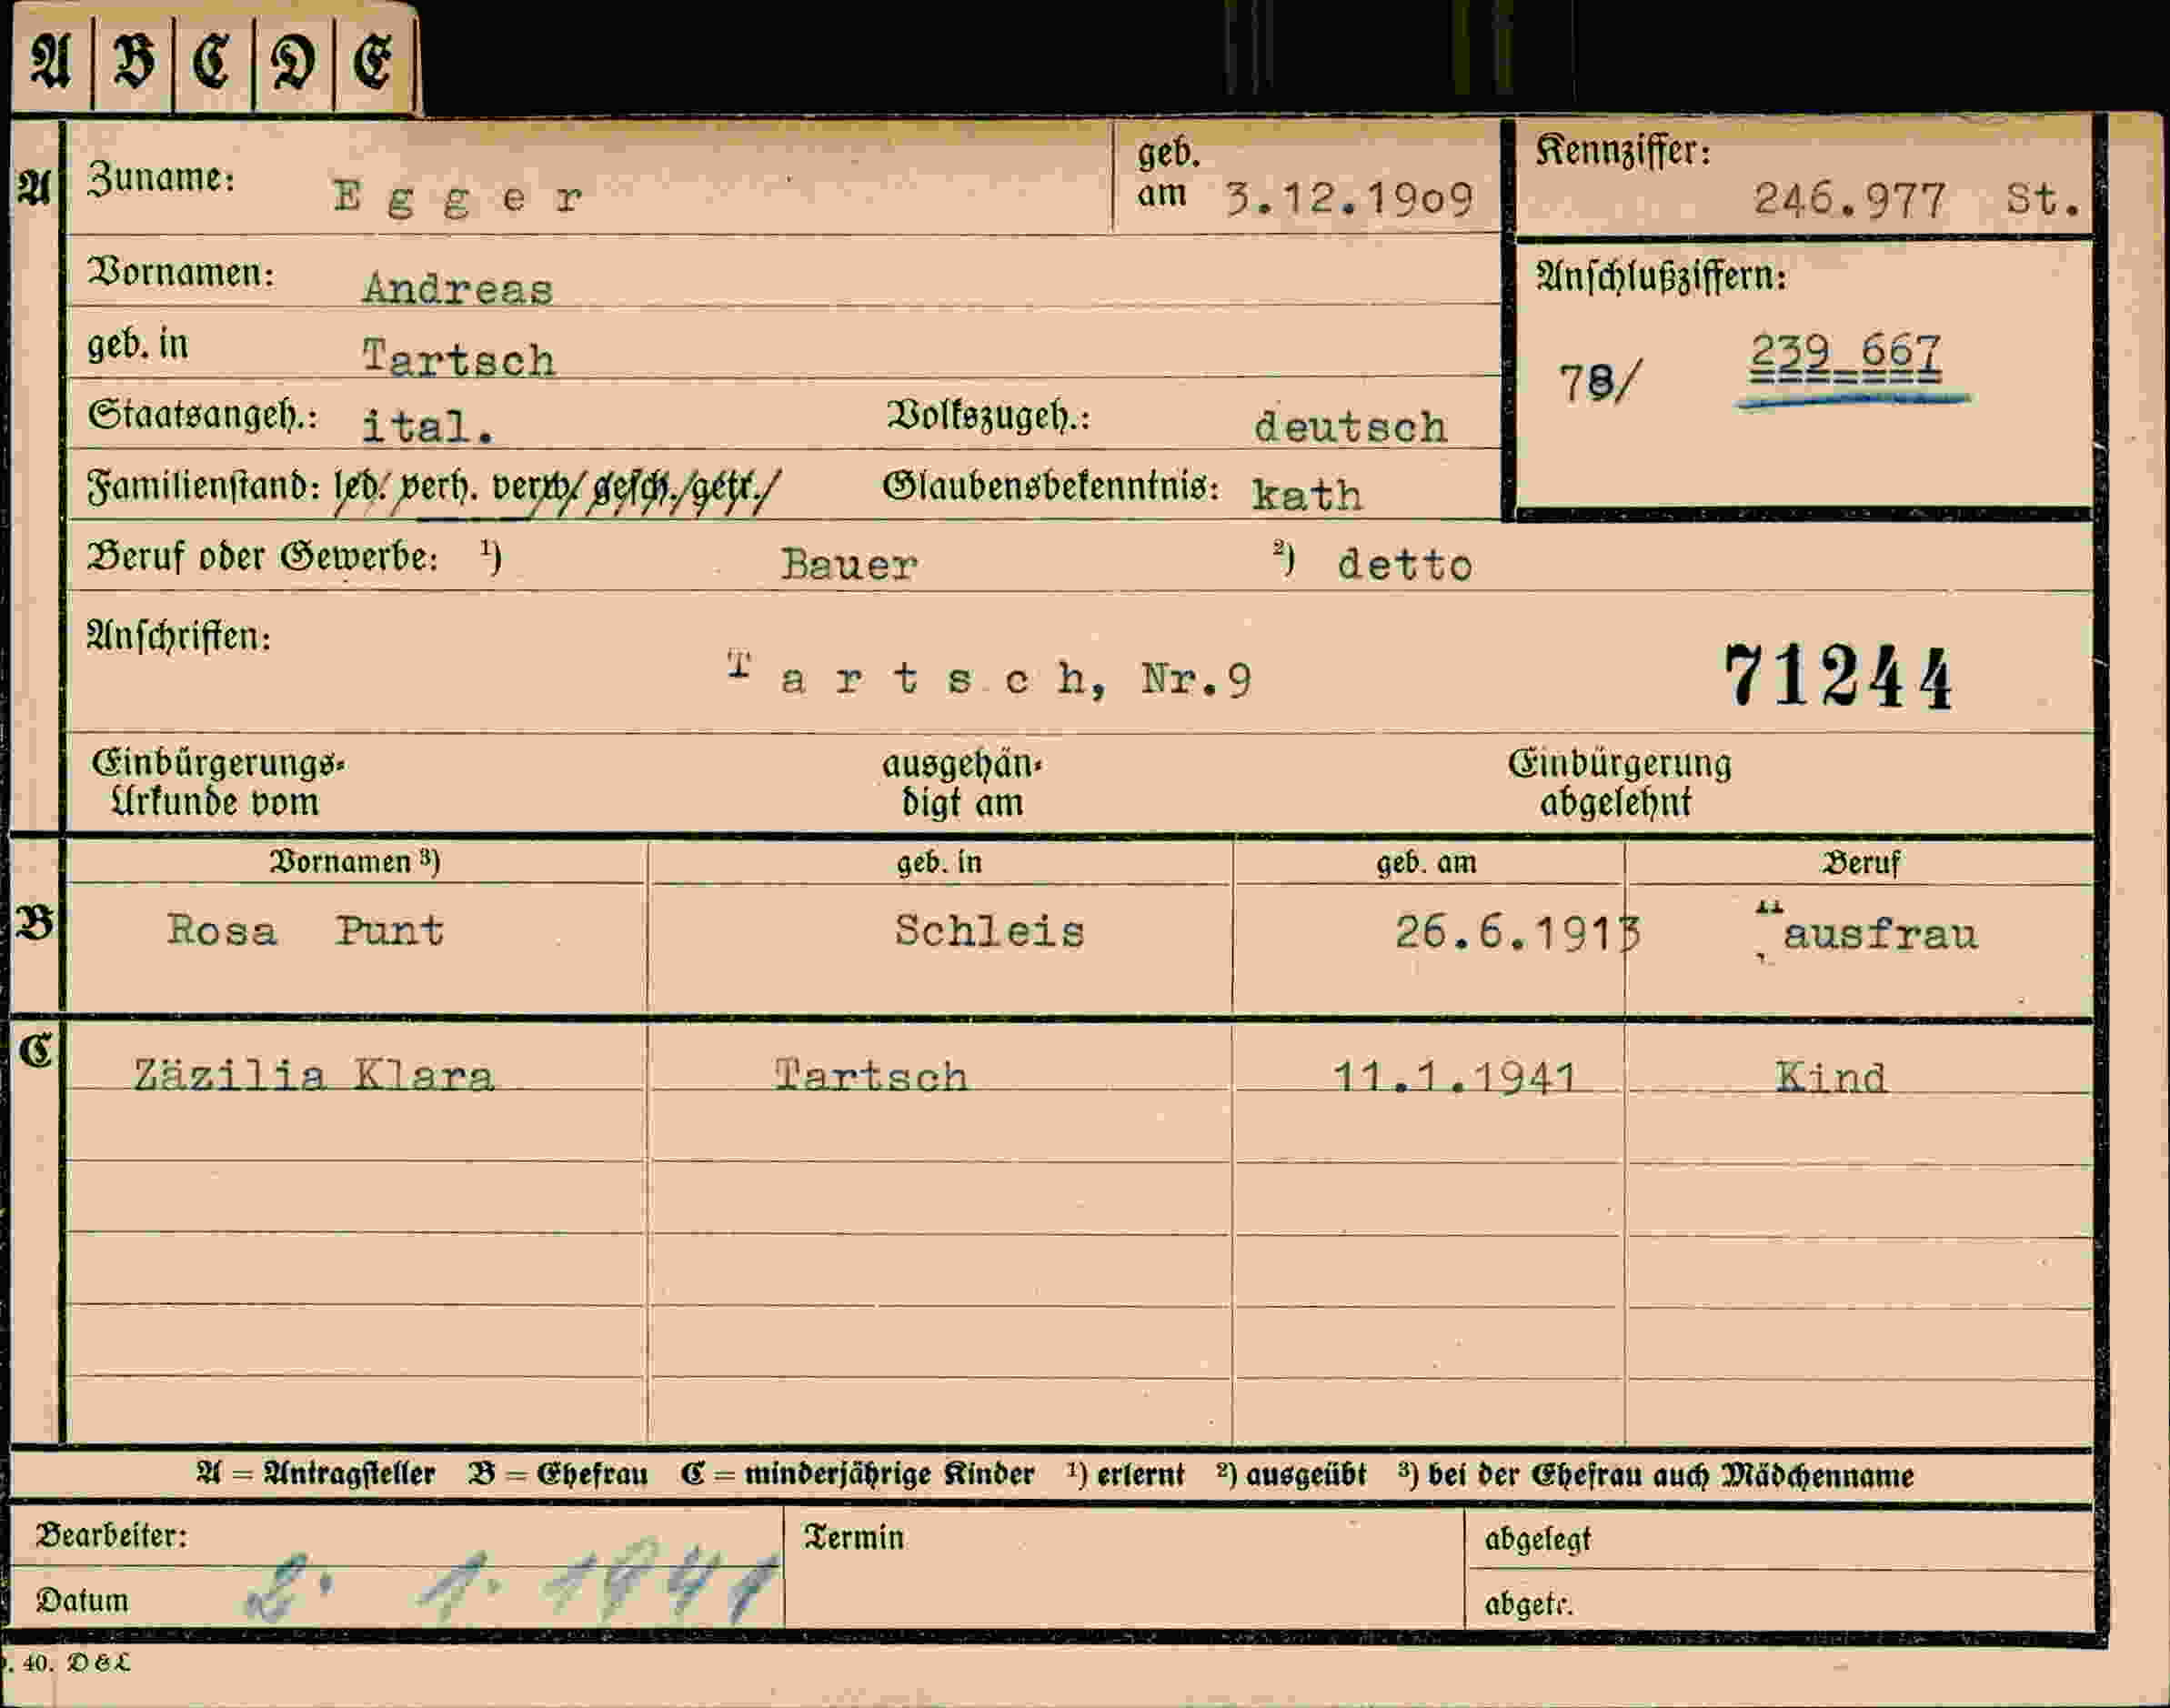 A B C D E
A Zuname: Egger geb. am 3.12.1909 Kennziffer: 246.977 St.
Vornamen: Andreas Anschlußziffern:
geb. in Tartsch 78/ 239 667
Staatsangeh.: ital. Volkszugeh.: deutsch
Familienstand: led./ verh. verw./ gesch./getr./ Glaubensbekenntnis: kath
Beruf oder Gewerbe: 1) Bauer 2) detto
Anschriften: Tartsch, Nr.9 71244
Einbürgerungs- ausgehän- Einbürgerung
Urkunde vom digt am abgelehnt
Vornamen 3) geb. in geb. am Beruf
B Rosa Punt Schleis 26.6.1913 Hausfrau
C Zäzilia Klara Tartsch 11.1.1941 Kind
A = Antragsteller B = Ehefrau C = minderjährige Kinder 1) erlernt 2) ausgeübt 3) bei der Ehefrau auch Mädchenname
Bearbeiter: Termin abgelegt
Datum 2. 1. 1941 abgetr.
. 40. D&L